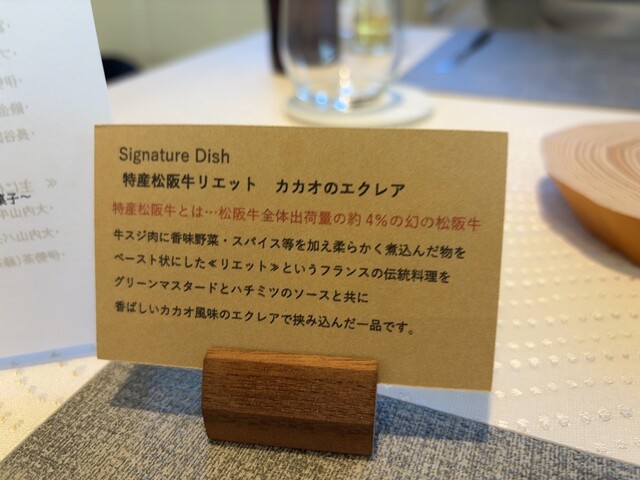 Signature Dish
特産松阪牛リエット　カカオのエクレア
特産松阪牛とは…松阪牛全体出荷量の約4%の幻の松阪牛
牛スジ肉に香味野菜・スパイス等を加え柔らかく煮込んだ物を
ペースト状にした≪リエット≫というフランスの伝統料理を
グリーンマスタードとハチミツのソースと共に
香ばしいカカオ風味のエクレアで挟み込んだ一品です。